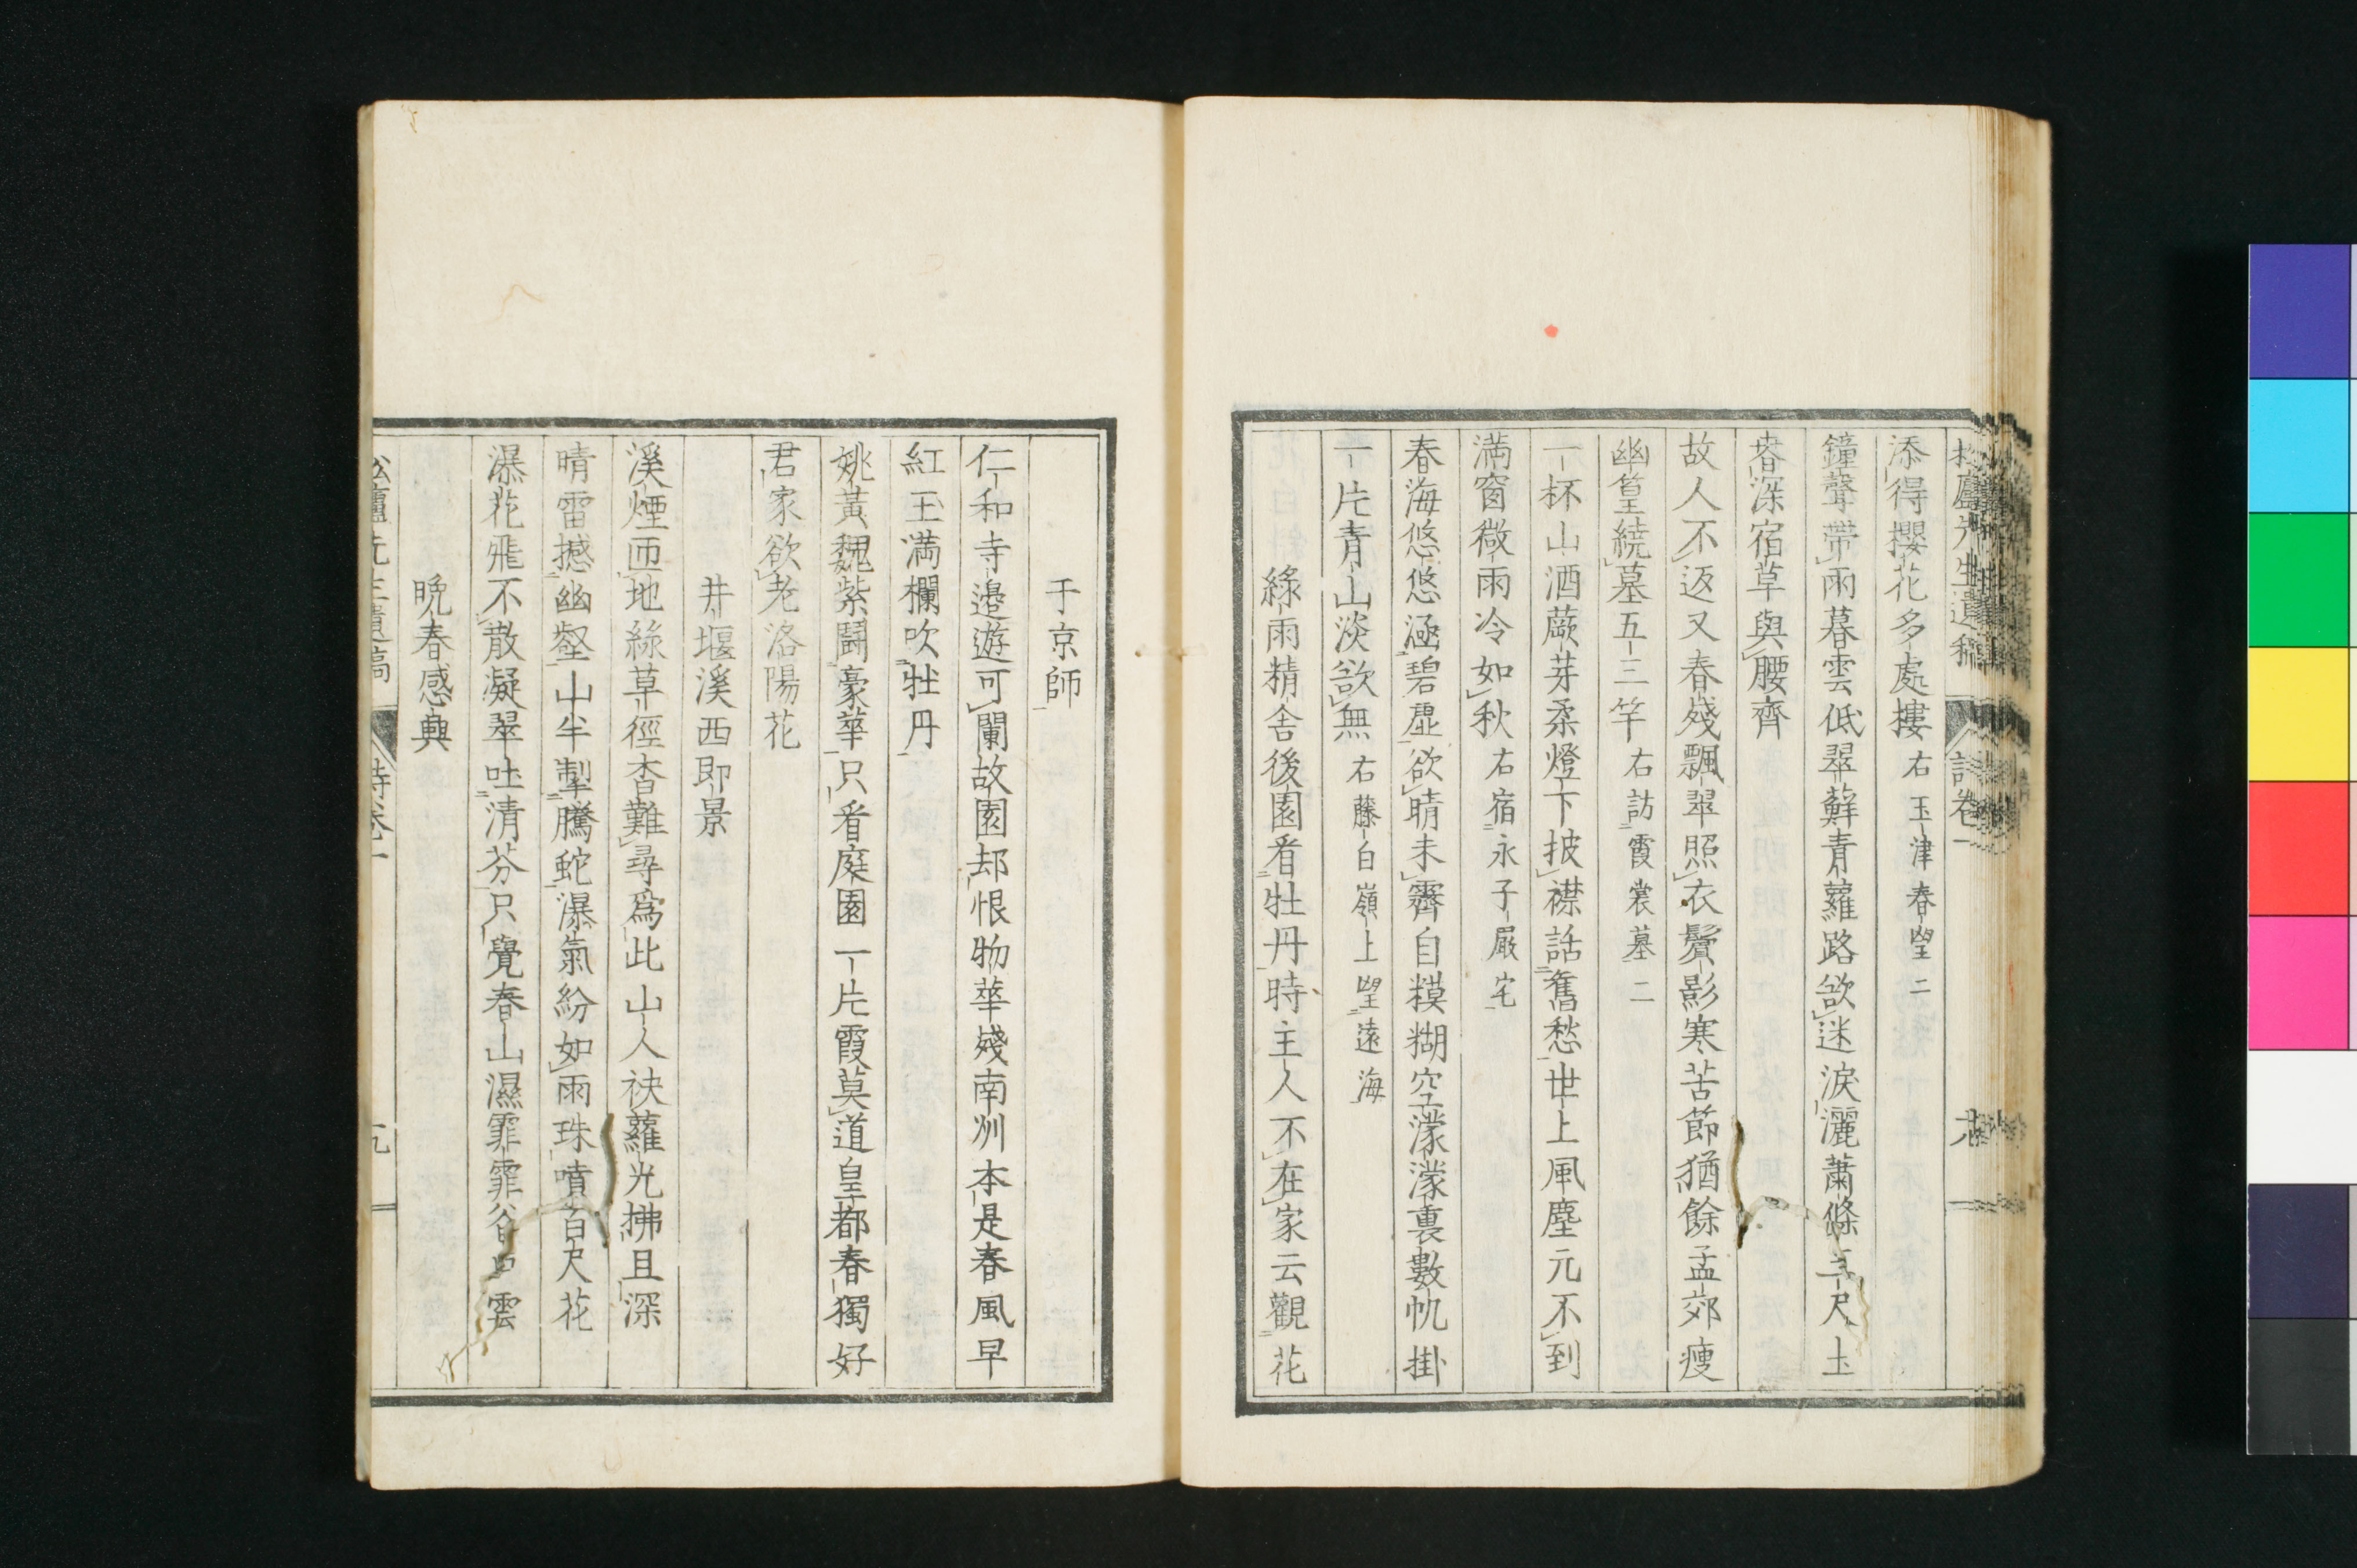 添得櫻花多處樓 右玉津春望二
鐘聲帶雨暮雲低翠蘚青蘿路欲迷淚灑蕭條三尺土
春深宿草與腰齊
故人不返又春殘飄翠照衣鬢影寒苦節猶餘孟郊瘦
幽篁繞墓五三竿 右訪霞裳墓二
一杯山酒蕨芽柔燈下披襟話舊愁世上風塵元不到
満窗微雨冷如秋 右宿永子嚴宅
春海悠悠涵碧虛欲晴未霽自糢糊空濛濛裏數帆掛
一片青山淡欲無 右藤白嶺上望遠海
綠雨精舍後園看牡丹時主人不在家云觀花
于京師
仁和寺邊遊可闌故園却恨物華殘南州本是春風早
紅玉満欄吹牡丹
姚黃魏紫鬪豪華只看庭園一片霞莫道皇都春獨好
君家欲老洛陽花
井堰溪西即景
溪煙匝地綠草徑杳難尋爲此山人袂蘿光拂且深
晴雷撼幽壑山半掣騰蛇瀑氣紛如雨珠噴百尺花
瀑花飛不散凝翠吐清芬只覺春山濕霏霏谷口雲
晩春感興